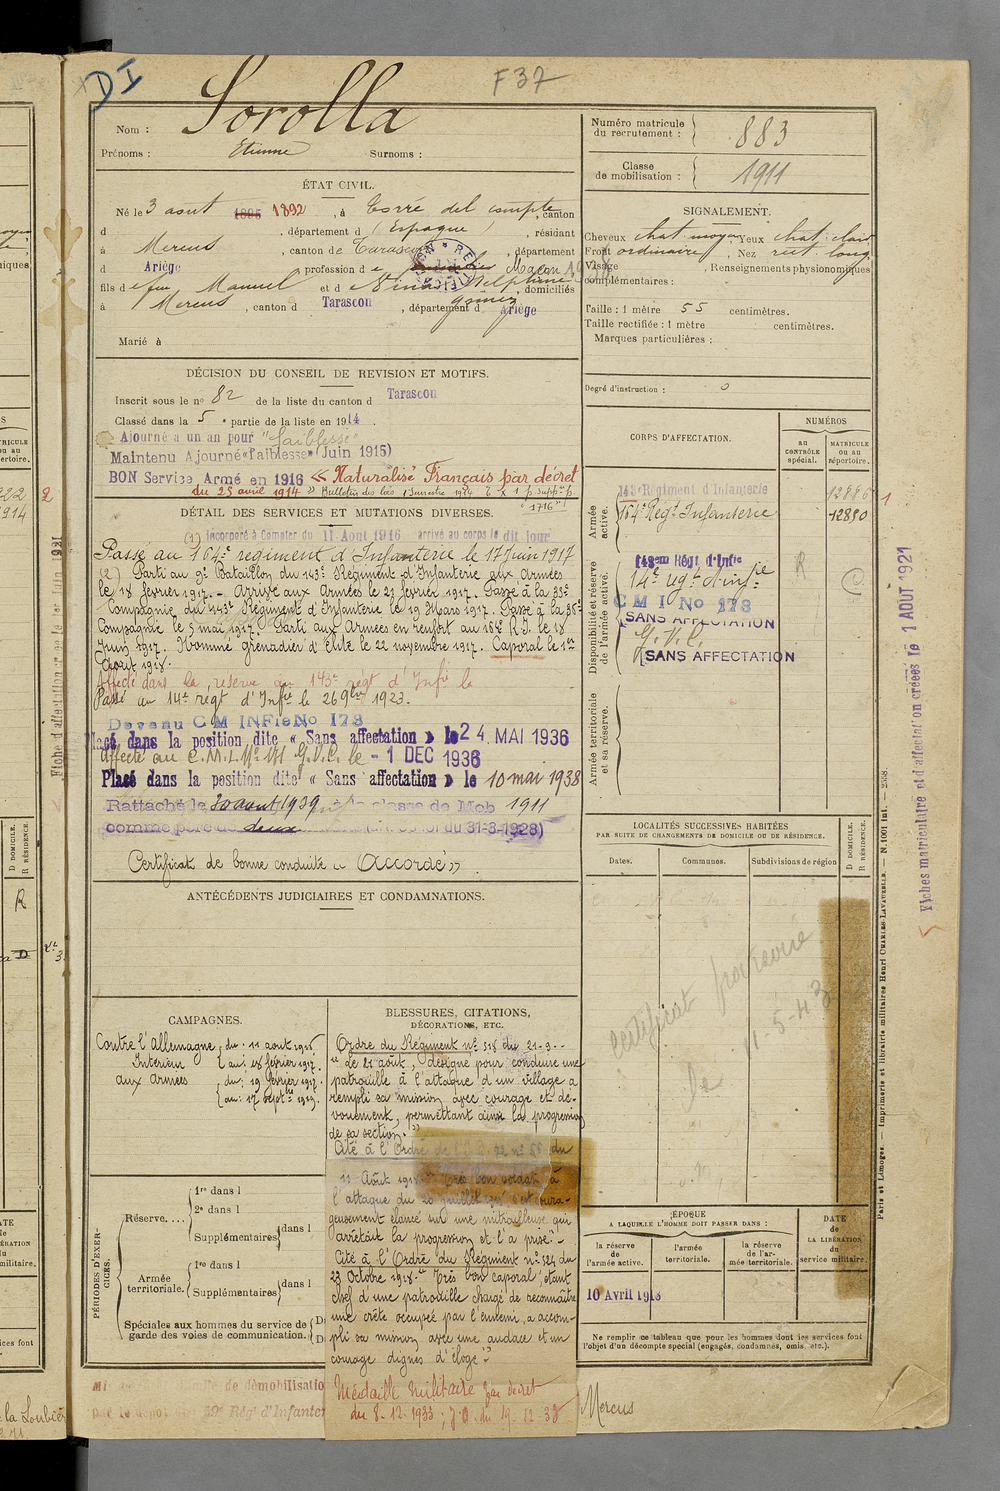 DI
F 37
Nom : Sorolla
Prénoms : Etienne Surnoms :
Numéro matricule
du recrutement : 883
Classe
de mobilisation : 1911
ÉTAT CIVIL.
Né le 3 aout 1895 1892, à Torré del compte, canton
d , département d (Espagne), résidant
à Mercus, canton de Tarascon, département
d Ariège, profession de Maçon
fils de feu Manuel et de Delphine, domiciliés
Gomez
à Mercus, canton d Tarascon, département d Ariège
Marié à
SIGNALEMENT.
Cheveux chat. moyen, Yeux chat. clair
Front ordinaire, Nez rect. long
Visage , Renseignements physionomiques
complémentaires :
Taille : 1 mètre 55 centimètres.
Taille rectifiée : 1 mètre centimètres.
Marques particulières :
Degré d'instruction : 0
DÉCISION DU CONSEIL DE REVISION ET MOTIFS.
Inscrit sous le n° 82 de la liste du canton d Tarascon
Classé dans la 5e partie de la liste en 1914.
Ajourné à un an pour "faiblesse"
Maintenu Ajourné «Faiblesse» (Juin 1915)
BON Service Armé en 1916 « Naturalisé Français par décret
du 25 avril 1914 » Bulletin des lois
"1716"
DÉTAIL DES SERVICES ET MUTATIONS DIVERSES.
(1) Incorporé à Compter du 11 Aout 1916 arrivé au corps le dit jour
Passé au 164e régiment d'Infanterie le 17 Juin 1917
(2) Parti au 9e Bataillon du 143e Régiment d'Infanterie aux Armées
le 18 février 1917. - Arrivé aux Armées le 21 février 1917. Passé à la 35e
Compagnie du 143e Régiment d'Infanterie le 19 Mars 1917. Passé à la 36e
Compagnie le 5 mai 1917. Parti aux Armées en renfort au 164e R.I. le 18
Juin 1917. Nommé grenadier d'élite le 22 novembre 1917. Caporal le 1er
Août 1918.
Affecté dans la réserve au 143e régt d'Infie le
Passé au 14e régt d'Infie le 26 9bre 1923.
Devenu C M INFie No 173
Placé dans la position dite « Sans affectation » le 24 MAI 1936
Affecté au C.M.I. N° 171 G.V.C. le - 1 DEC 1936
Placé dans la position dite « Sans affectation » le 10 mai 1938
Rattaché le 30 aout 1939 à la classe de Mob 1911
comme père de deux du 31-3-1928)
Certificat de bonne conduite « Accordé »
CORPS D'AFFECTATION.
NUMÉROS
au
CONTRÔLE
spécial.
MATRICULE
ou au
répertoire.
Armée
active.
143e Régiment d'Infanterie 12886
164e Régt Infanterie 12880
Disponibilité et réserve
de l'armée active.
143em Régt d'Infie
14e régt d'infie R
C M I No 173
SANS AFFECTATION
G.V.C.
SANS AFFECTATION
Armée territoriale
et sa réserve.
Fiches matriculaire et d'affectation créées le 1 AOUT 1921
Fiche d'affectation
LOCALITÉS SUCCESSIVES HABITÉES
PAR SUITE DE CHANGEMENTS DE DOMICILE OU DE RÉSIDENCE.
Dates. Communes. Subdivisions de région
D DOMICILE.
R RÉSIDENCE.
certificat provisoire
le 11-5-43
ANTÉCÉDENTS JUDICIAIRES ET CONDAMNATIONS.
CAMPAGNES.
Contre l'Allemagne du : 11 aout 1916
Intérieur au : 18 février 1917.
aux armées du : 19 février 1917.
au : 17 septbre 1919.
BLESSURES, CITATIONS,
DÉCORATIONS, ETC.
Ordre du Régiment n° 318 du 21-9-
"Le 21 août, désigné pour conduire une
patrouille à l'attaque d'un village a
rempli sa mission avec courage et dé-
vouement, permettant ainsi la progression
de sa section."
Cité à l'Ordre n° 58 du
11 Août 1918. Très bon soldat, à
l'attaque du 20 juillet s'est coura-
geusement élancé sur une mitrailleuse qui
arrêtait la progression et l'a prise."
Cité à l'Ordre du Régiment n° 324 du
23 Octobre 1918. "Très bon caporal, étant
chef d'une patrouille chargé de reconnaître
une crête occupée par l'ennemi, a accom-
pli sa mission avec une audace et un
courage dignes d'éloge"
Médaille Militaire par décret
du 8.12.1933 ; J.O. du 19-12-33
PÉRIODES D'EXER-
CICES.
Réserve....
1re dans l
2e dans l
Supplémentaires dans l
Armée
territoriale.
1re dans l
Supplémentaires dans l
Spéciales aux hommes du service de
garde des voies de communication.
ÉPOQUE
A LAQUELLE L'HOMME DOIT PASSER DANS :
la réserve
de
l'armée active.
l'armée
territoriale.
la réserve
de l'ar-
mée territoriale.
DATE
de
LA LIBÉRATION
du
service militaire.
10 Avril 1918
Ne remplir ce tableau que pour les hommes dont les services font
l'objet d'un décompte spécial (engagés, condamnés, omis, etc.).
de démobilisation
par le dépôt 59e Rég d'Infanter
Mercus
Paris et Limoges. — Imprimerie et librairie militaires Henri CHARLES-LAVAUZELLE.